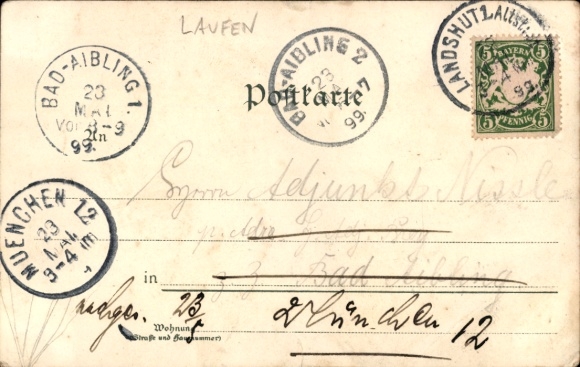 LAUFEN
BAD-AIBLING 1.
23
MAI
VOR 8-9
99.
BAD-AIBLING 2
23
99
LANDSHUT 1
99
BAYERN
5 5
5 PFENNIG 5
Postkarte
An
Herrn Adjunkt Nissle
MUENCHEN 12
23
MAI
3-4 
in Bad Aibling
nachges. 23/5 München 12
Wohnung
(Straße und Hausnummer)